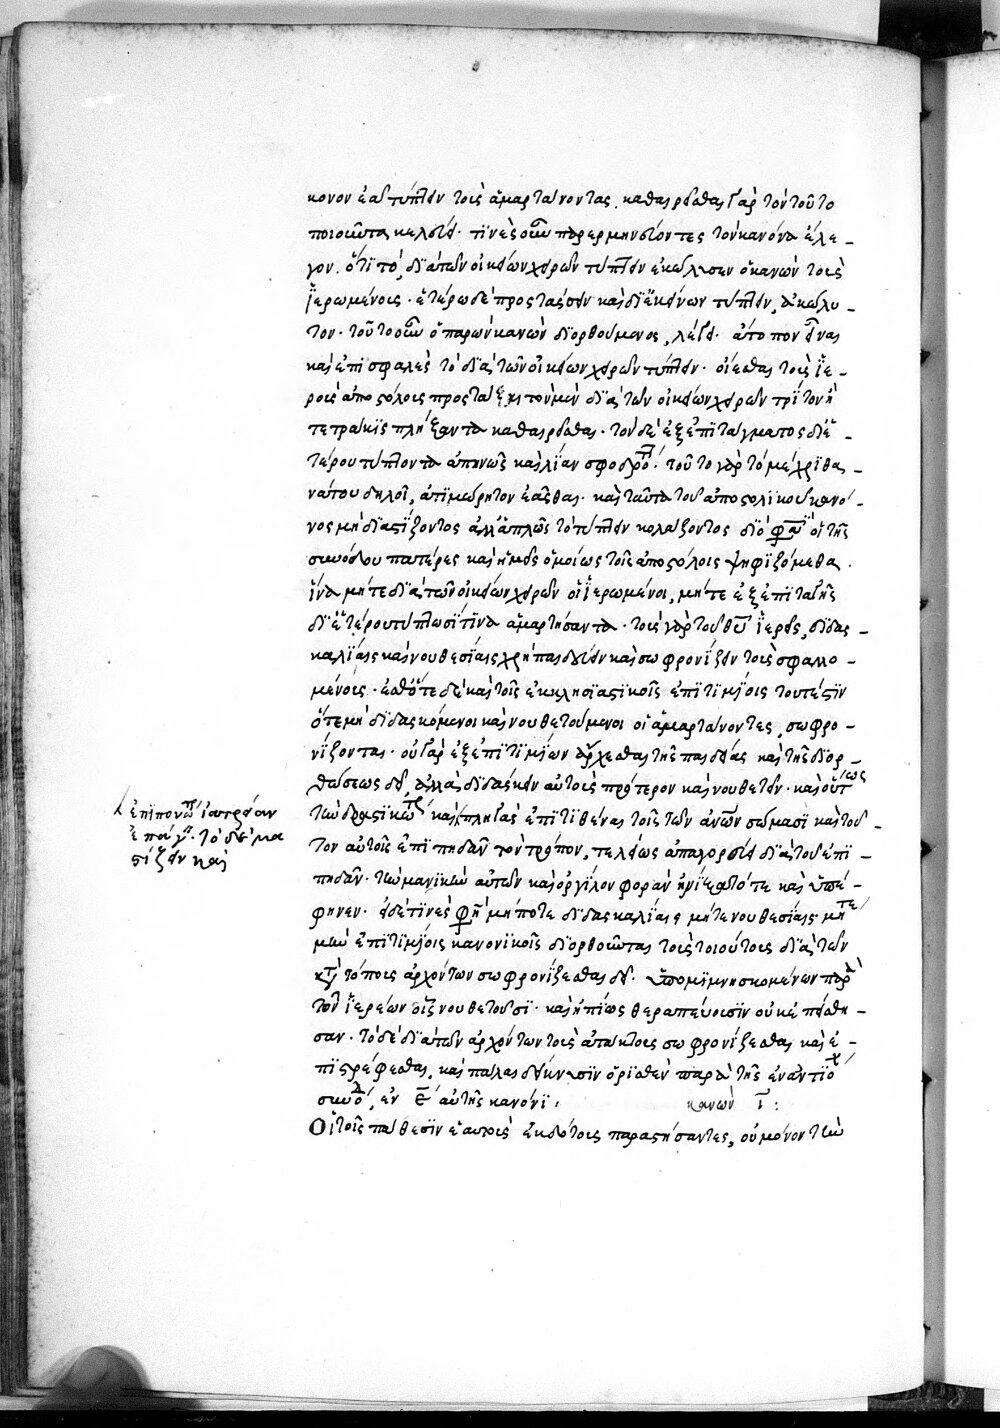 κονον ἐπὶ τύπτειν τοὺς ἁμαρτάνοντας. καθαιρεῖσθαι γὰρ τὸν τοῦτο
ποιοῦντα κελεύει. τινὲς οὖν παρερμηνεύοντες τὸν κανόνα ἔλε-
γον. ὅτι τὸ, δι' αὐτῶν οἰκείων χειρῶν τύπτειν ἐκώλυσεν ὁ κανὼν τοὺς
ἱερωμένους. ἑτέρω δὲ προστάσσειν καὶ δι' ἐκείνων τύπτειν, ἀκώλυ-
τον. τοῦτο οὖν ὁ παρὼν κανὼν διορθούμενος, λέγει. ἄτοπον εἶναι
καὶ ἐπισφαλὲς τὸ διὰ τῶν οἰκείων χειρῶν τύπτειν. οἴεσθαι τοὺς ἱε-
ροὺς ἀποστόλους προστάξαι τὸν μὲν διὰ τῶν οἰκείων χειρῶν τρίτον ἢ
τετράκις πλήξαντα καθαιρεῖσθαι. τὸν δὲ ἐξ ἐπιτάγματος δι' ἑ-
τέρου τύπτοντα ἀπηνῶς καὶ λίαν σφοδρο. τοῦτο γὰρ τὸ μέχρι θα-
νάτου δηλοῖ, ἀτιμώρητον ἐᾶσθαι. καὶ ταῦτα τοῦ ἀποστολικοῦ κανό-
νος μὴ διαστίζοντος ἀλλ' ἁπλῶς τὸ τύπτειν κολάζοντος διό φα οἱ τῆς
συνόδου πατέρες καὶ ἡμεῖς ὁμοίως τοῖς ἀποστόλοις ψηφιζόμεθα.
ἵνα μήτε διὰ τῶν οἰκείων χειρῶν οἱ ἱερωμένοι, μήτε ἐξ ἐπιταγῆς
δι' ἑτέρου τύπτωσί τινα ἁμαρτήσαντα. τοὺς γὰρ τοῦ θυ ἱερεῖς, διδασ-
καλίαις καὶ νουθεσίαις χρὴ παιδεύειν καὶ σωφρονίζειν τοὺς σφαλλο-
μένους. ἔσθ' ὅτε δὲ καὶ τοῖς ἐκκλησιαστικοῖς ἐπιτιμίοις τουτέστιν
ὅτε μὴ διδασκόμενοι καὶ νουθετούμενοι οἱ ἁμαρτάνοντες, σωφρο-
νίζονται. οὐ γὰρ ἐξ ἐπιτιμίων ἄρχεσθαι τῆς παιδείας καὶ τῆς διορ-
θώσεως δεῖ, ἀλλὰ διδάσκειν αὐτοὺς πρότερον καὶ νουθετεῖν. καὶ οὕτως
τῶ δραστικω καὶ πληγὰς ἐπιτιθέναι τοῖς τῶν ἀνων σώμασι καὶ τοῦ-
τον αὐτοῖς ἐπιπηδᾶν τὸν τρόπον, τελείως ἀπαγορεύει διὰ τοῦ ἐπι
πηδᾶν. τὴν μανικὴν αὐτῶν καὶ ὀργίλον φορὰν ᾐνίξατό τε καὶ ὑπέ-
φηνεν. εἰ δέ τινές φη μήποτε διδασκαλίαις μήτε νουθεσίαις μήτε
μὴν ἐπιτιμίοις κανονικοῖς διορθοῦνται τοὺς τοιούτους διὰ τῶν
κτ τόπους ἀρχόντων σωφρονίζεσθαι δεῖ. ὑπομιμνησκομένων παρὰ
τῶν ἱερέων οἷς νουθετοῦσι. καὶ ἠπίως θεραπεύουσιν οὐκ ἐπείσθη-
σαν. τὸ δὲ διὰ τῶν ἀρχόντων τοὺς ἀτάκτους σωφρονίζεσθαι καὶ ἐ-
πιστρέφεσθαι, καὶ πάλαι δείκνυσιν ὁρισθὲν παρὰ τῆς ἐν ἀντιοχ
συνοδ, ἐν ε αὐτῆς κανόνι:
κανὼν ι:
Οἱ τοῖς πάθεσιν ἑαυτοὺς ἐκδότους παραστήσαντες, οὐ μόνον τὴν
ἐπίπονω ἰατρείαν
ἐπάγ. τὸ δὲ μα
στίζειν καὶ